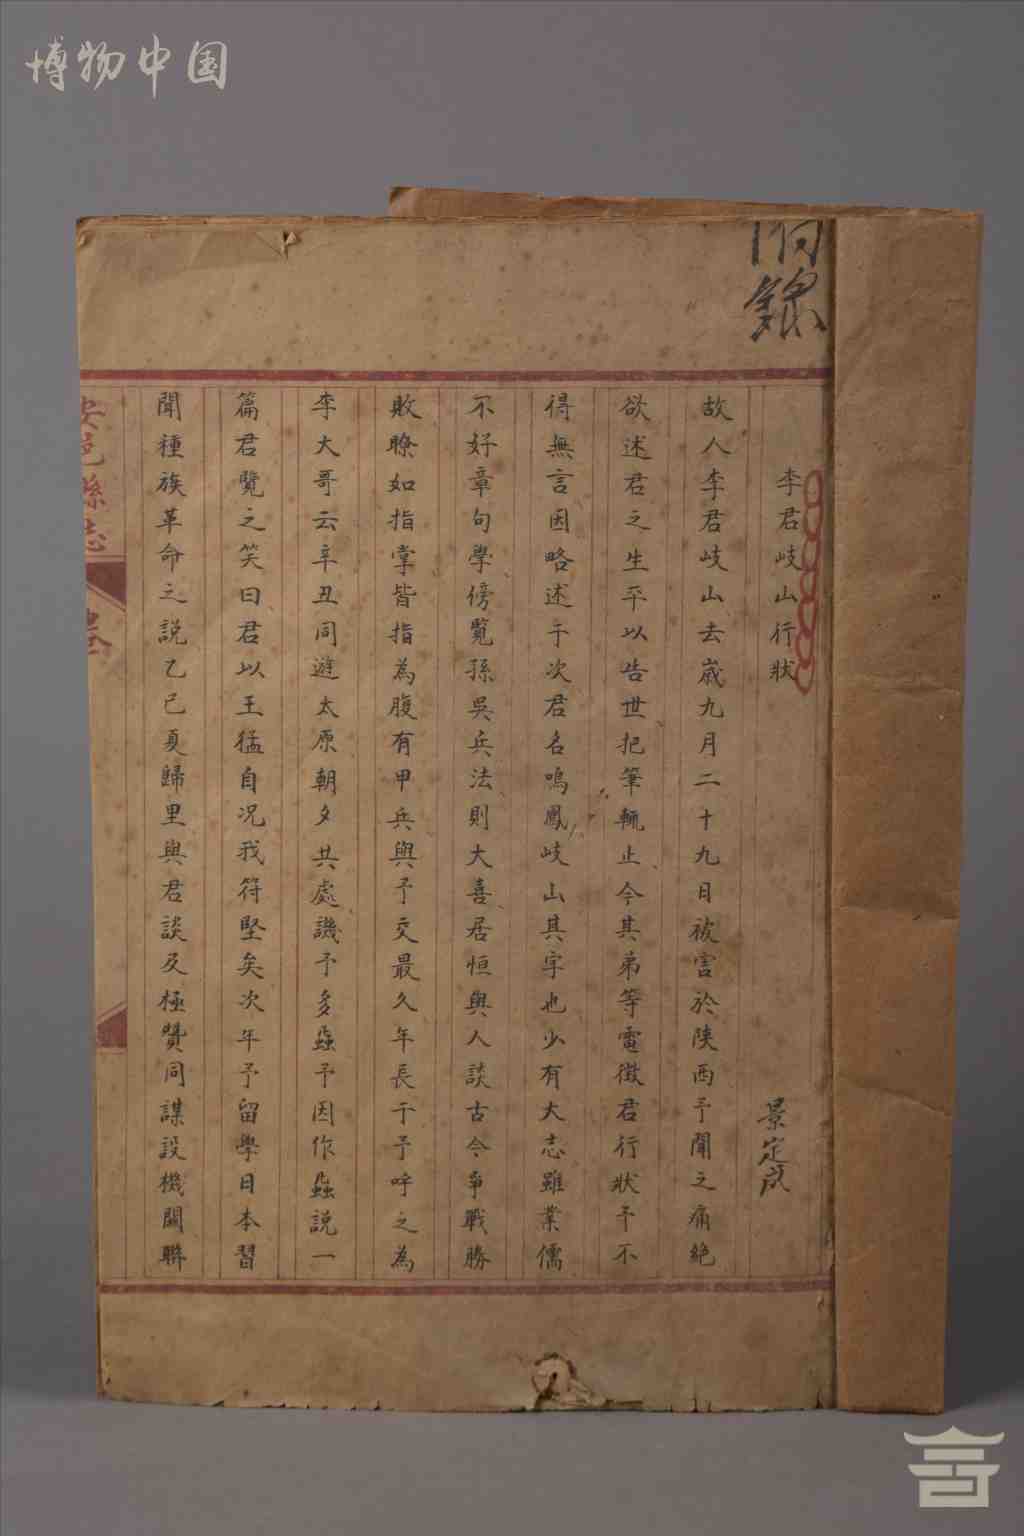 博物中国
附錄
李君岐山行狀
景定成
故人李君岐山去歲九月二十九日被害於陝西予聞之痛絕
欲述君之生平以告世把筆輒止今其弟等電徵君行狀予不
得無言因略述于次君名鳴鳳岐山其字也少有大志雖業儒
不好章句學傍覽孫吳兵法則大喜居恒與人談古今爭戰勝
敗瞭如指掌皆指為腹有甲兵與予交最久年長于予呼之為
李大哥云辛丑同遊太原朝夕共處譏予多蝨予因作蝨說一
篇君覽之笑曰君以王猛自况我符堅矣次年予留學日本習
聞種族革命之說乙巳夏歸里與君談及極贊同謀設機關聯
安邑縣志